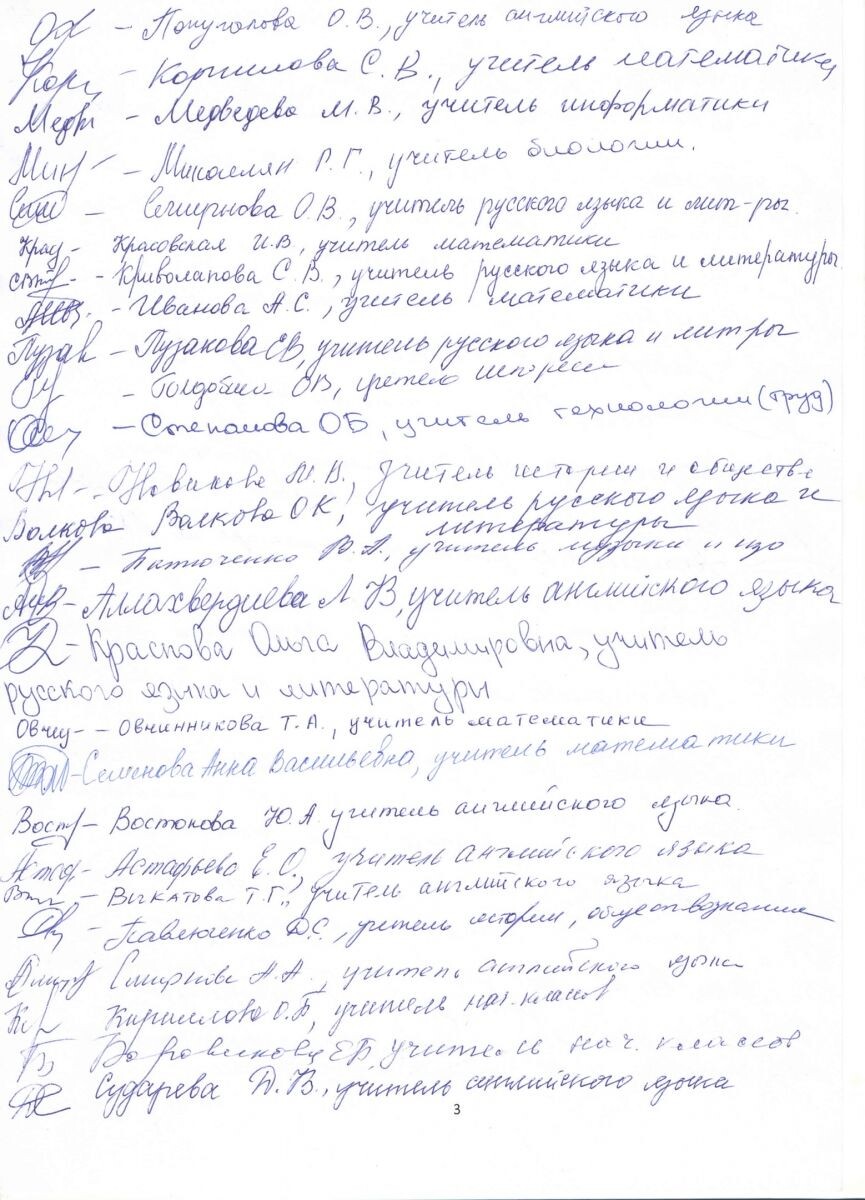 – Попуголова О.В., учитель английского языка
Корн – Корнилова С.В., учитель математики
Медв – Медведева М.В., учитель информатики
– Микаелян Г.Г., учитель биологии.
– Смирнова О.В., учитель русского языка и лит-ры.
Крас – Красовская И.В, учитель математики
– Криволапова С.В., учитель русского языка и литературы
– Иванова А.С., учитель математики
Пузак – Пузакова ЕВ, учитель русского языка и литры
– ОВ, учитель истории
– Степанова ОБ, учитель технологии (труд)
– Новикова М.В., учитель истории и обществ
Волкова Волкова ОК, учитель русского языка и
литературы
– Ю.А., учитель музыки и изо
– Аллахвердиева Л В, учитель английского языка
– Краснова Ольга Владимировна, учитель
русского языка и литературы
Овчи – Овчинникова Т.А., учитель математики
– Семенова Анна Васильевна, учитель математики
Вост – Востокова Ю.А. учитель английского языка.
Астаф – Астафьева Е.О., учитель английского языка
– Вычкатова Т.Г., учитель английского языка
– Павлюченко Д.С., учитель истории, обществознания
Смирнова А.А., учитель английского языка
Кириллова О.Б, учитель нач. классов
Боровикова ЕВ учитель нач. классов
Сударева Д.В., учитель английского языка
3